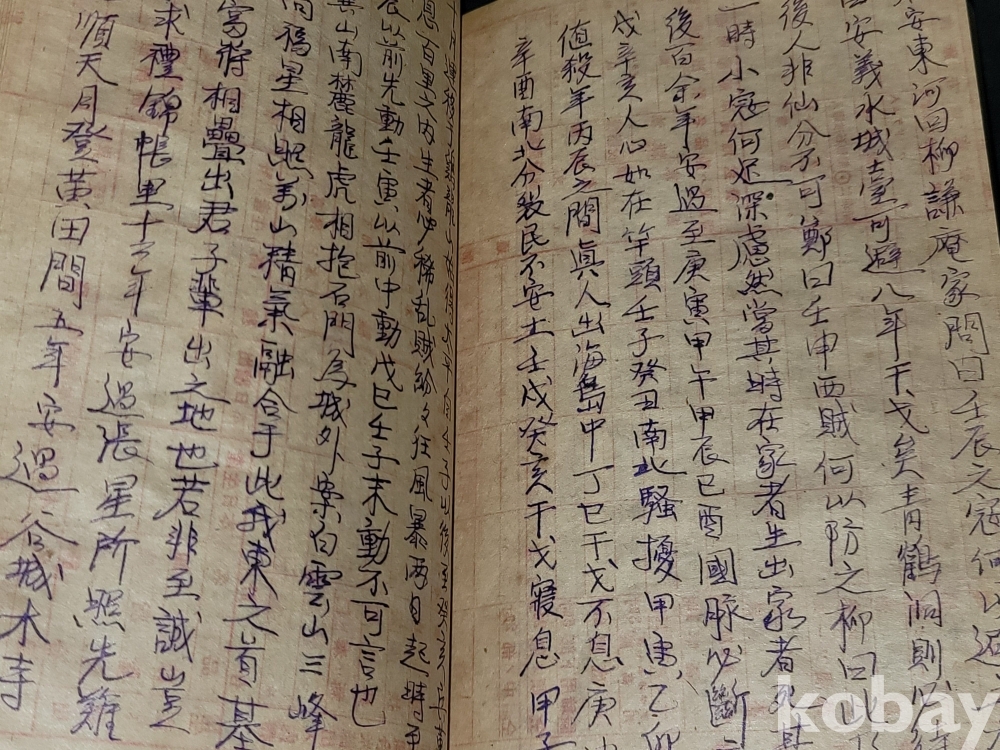 安東河回柳謙庵家問曰壬辰之寇何以避
安義水城壹可避八年干戈矣靑鶴洞則以
後人非仙分不可鄭曰壬申西賊何以防之柳曰以
一時小寇何足深慮然當其時在家者生出家者死
後百余年安過至庚寅甲午甲辰巳酉國脉必斷
戌辛亥人心如在竿頭壬子癸丑南北騷擾甲寅乙卯
值殺年丙辰之間眞人出海島中丁巳干戈不息庚
辛酉南北分裂民不安土壬戌癸亥干戈寢息甲子
息百里之內生者必稀乱賊紛々狂風暴雨日起時
辰以前先動壬寅以前中動戊巳壬子末動不可言也
山南麓龍虎相抱石門爲城外案白雲山三峰
向福星相照前山精氣融合于此我東之首基
富將相疊出君子輩出之地也若非至誠豈
求禮錦帳里十六年安過張星所照先難
順天月登黃田間五年安過谷城木寺
kobay